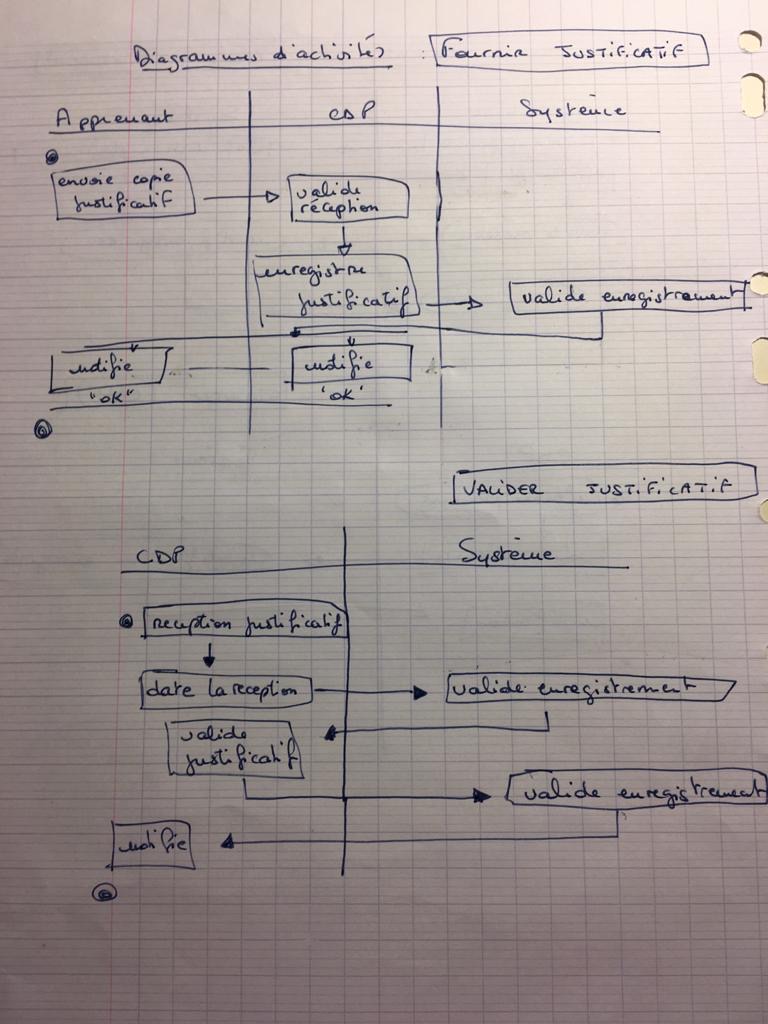 Diagrammes d'activités : Fournir JUSTIFICATIF
Apprenant CDP Système
envoie copie
justificatif
valide
réception
enregistre
justificatif
valide enregistrement
notifie
"OK"
notifie
"OK"
VALIDER JUSTIFICATIF
CDP Système
reception justificatif
date la reception
valide enregistrement
valide
justificatif
valide enregistrement
notifie